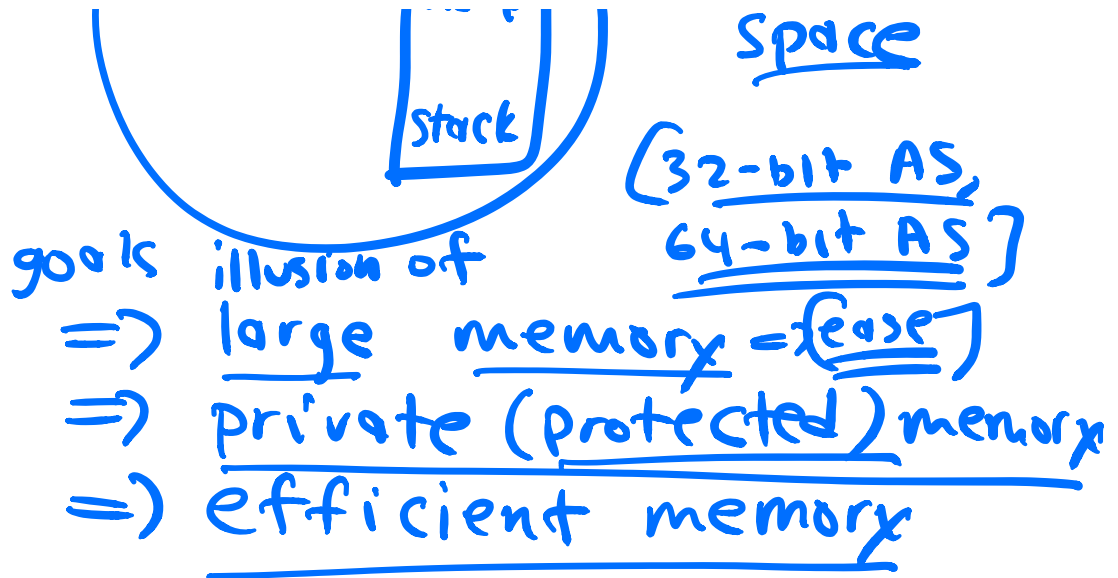 space
stack
(32-bit AS,
64-bit AS]
goals illusion of
=> large memory = [ease]
=> private (protected) memory
=> efficient memory